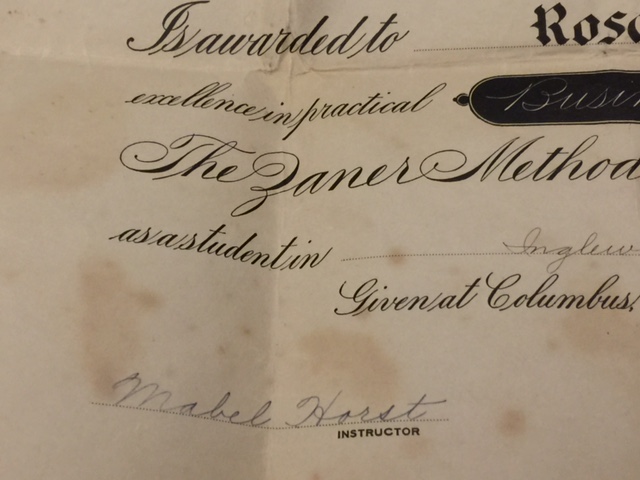 Is awarded to
excellence in practical
The Zaner Method
as a student in
Given at Columbus,
Mabel Horst
INSTRUCTOR